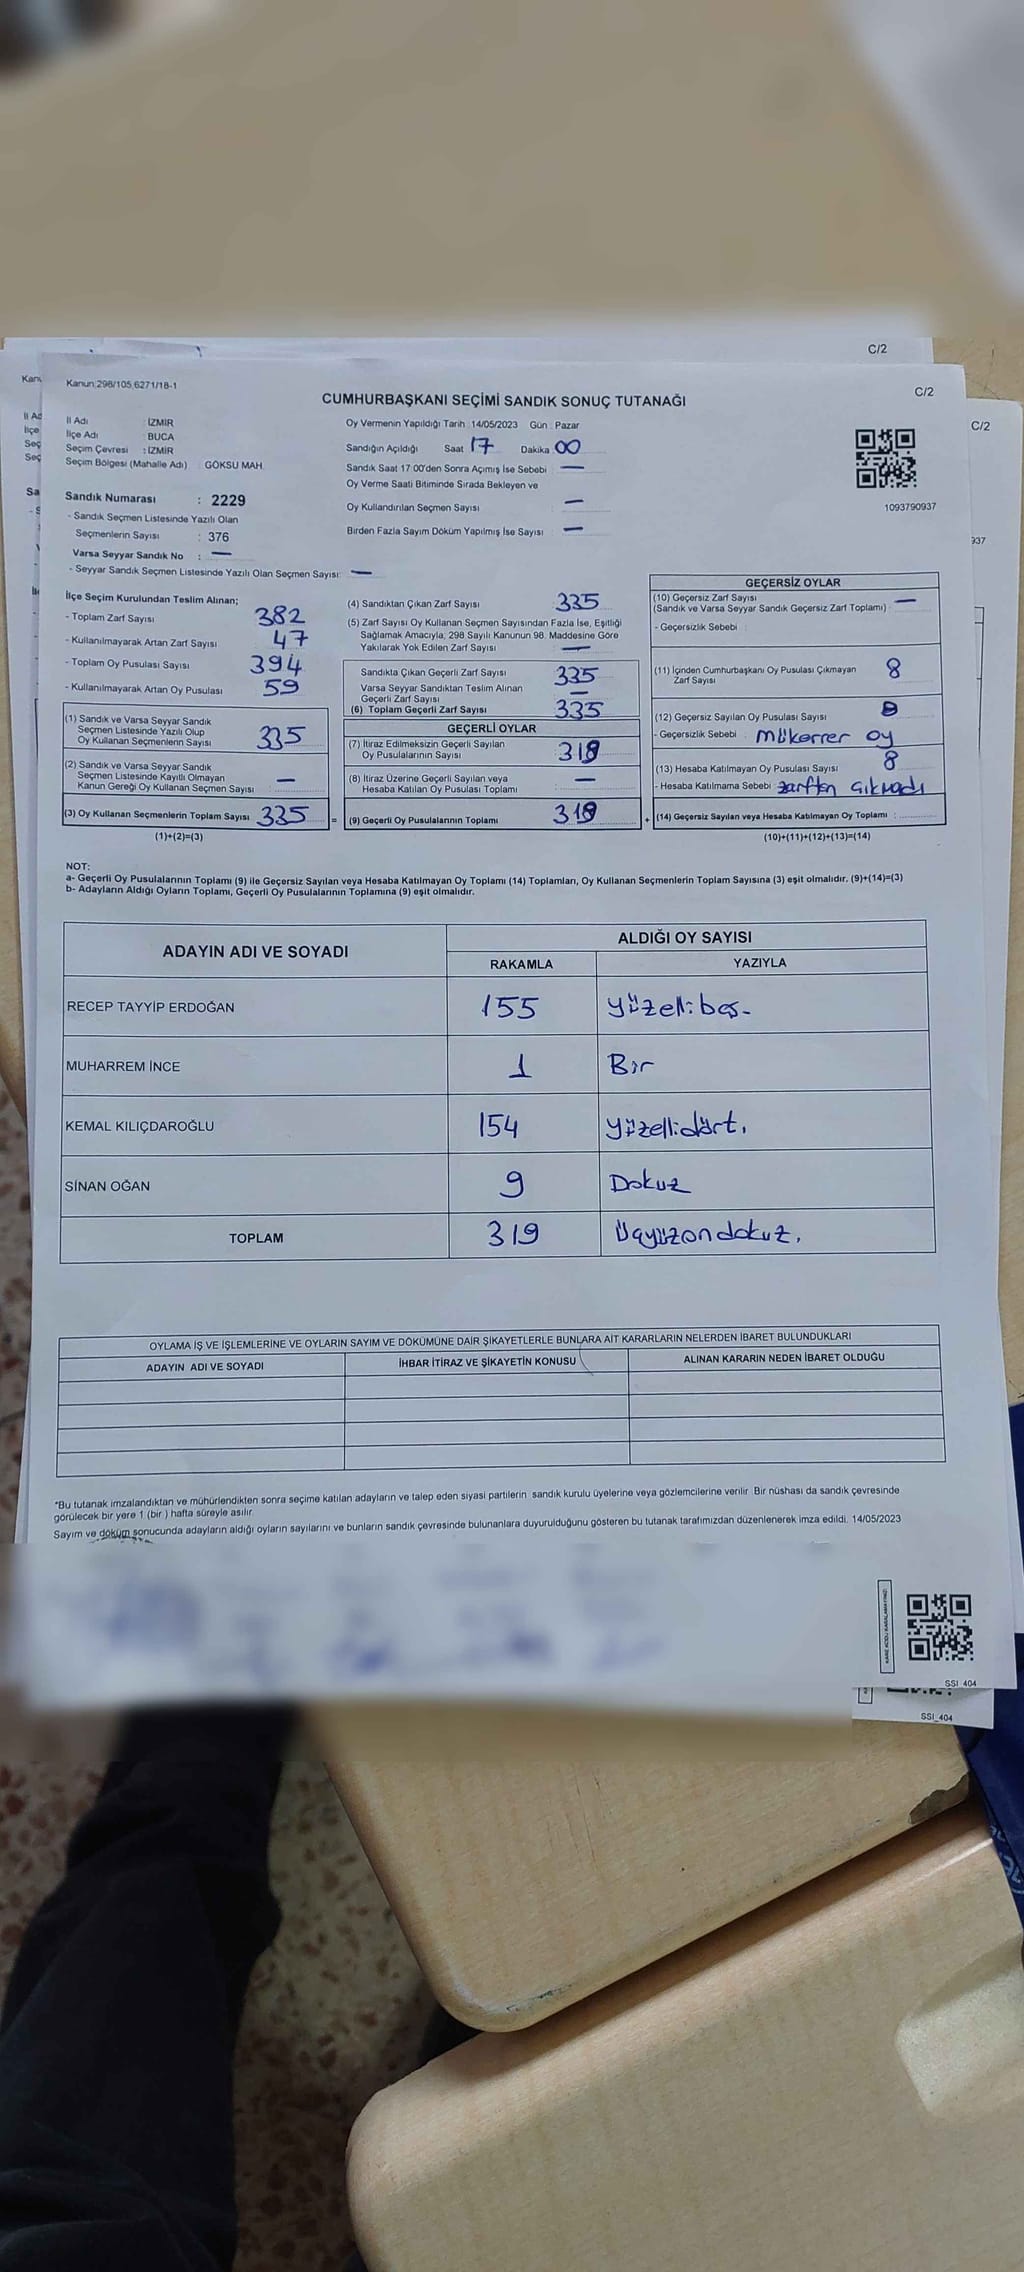 C/2
Kanun;298/105,6271/18-1
C/2
C/2
CUMHURBAŞKANI SEÇİMİ SANDIK SONUÇ TUTANAĞI
İl Adı : İZMİR
İlçe Adı : BUCA
Seçim Çevresi : İZMİR
Seçim Bölgesi (Mahalle Adı) : GÖKSU MAH.
Sandık Numarası : 2229
- Sandık Seçmen Listesinde Yazılı Olan
Seçmenlerin Sayısı : 376
Varsa Seyyar Sandık No : —
- Seyyar Sandık Seçmen Listesinde Yazılı Olan Seçmen Sayısı: —
Oy Vermenin Yapıldığı Tarih :14/05/2023 Gün : Pazar
Sandığın Açıldığı Saat 17 Dakika 00
Sandık Saat 17:00'den Sonra Açılmış İse Sebebi : —
Oy Verme Saati Bitiminde Sırada Bekleyen ve
Oy Kullandırılan Seçmen Sayısı : —
Birden Fazla Sayım Döküm Yapılmış İse Sayısı : —
1093790937
937
İlçe Seçim Kurulundan Teslim Alınan;
- Toplam Zarf Sayısı 382
- Kullanılmayarak Artan Zarf Sayısı 47
- Toplam Oy Pusulası Sayısı 394
- Kullanılmayarak Artan Oy Pusulası 59
(1) Sandık ve Varsa Seyyar Sandık
Seçmen Listesinde Yazılı Olup
Oy Kullanan Seçmenlerin Sayısı 335
(2) Sandık ve Varsa Seyyar Sandık
Seçmen Listesinde Kayıtlı Olmayan
Kanun Gereği Oy Kullanan Seçmen Sayısı : —
(3) Oy Kullanan Seçmenlerin Toplam Sayısı 335 =
(1)+(2)=(3)
(4) Sandıktan Çıkan Zarf Sayısı 335
(5) Zarf Sayısı Oy Kullanan Seçmen Sayısından Fazla İse, Eşitliği
Sağlamak Amacıyla; 298 Sayılı Kanunun 98. Maddesine Göre
Yakılarak Yok Edilen Zarf Sayısı —
Sandıkta Çıkan Geçerli Zarf Sayısı 335
Varsa Seyyar Sandıktan Teslim Alınan
Geçerli Zarf Sayısı —
(6) Toplam Geçerli Zarf Sayısı 335
GEÇERLİ OYLAR
(7) İtiraz Edilmeksizin Geçerli Sayılan
Oy Pusulalarının Sayısı 319
(8) İtiraz Üzerine Geçerli Sayılan veya
Hesaba Katılan Oy Pusulası Toplamı —
(9) Geçerli Oy Pusulalarının Toplamı 319 +
GEÇERSİZ OYLAR
(10) Geçersiz Zarf Sayısı
(Sandık ve Varsa Seyyar Sandık Geçersiz Zarf Toplamı) —
- Geçersizlik Sebebi :
(11) İçinden Cumhurbaşkanı Oy Pusulası Çıkmayan
Zarf Sayısı 8
(12) Geçersiz Sayılan Oy Pusulası Sayısı
- Geçersizlik Sebebi : Mükerrer oy
(13) Hesaba Katılmayan Oy Pusulası Sayısı 8
- Hesaba Katılmama Sebebi zarftan çıkmadı
(14) Geçersiz Sayılan veya Hesaba Katılmayan Oy Toplamı :
(10)+(11)+(12)+(13)=(14)
NOT:
a- Geçerli Oy Pusulalarının Toplamı (9) ile Geçersiz Sayılan veya Hesaba Katılmayan Oy Toplamı (14) Toplamları, Oy Kullanan Seçmenlerin Toplam Sayısına (3) eşit olmalıdır. (9)+(14)=(3)
b- Adayların Aldığı Oyların Toplamı, Geçerli Oy Pusulalarının Toplamına (9) eşit olmalıdır.
ADAYIN ADI VE SOYADI
ALDIĞI OY SAYISI
RAKAMLA YAZIYLA
RECEP TAYYİP ERDOĞAN 155 yüzellibeş-
MUHARREM İNCE 1 Bir
KEMAL KILIÇDAROĞLU 154 yüzellidört.
SİNAN OĞAN 9 Dokuz
TOPLAM 319 Üçyüzondokuz.
OYLAMA İŞ VE İŞLEMLERİNE VE OYLARIN SAYIM VE DÖKÜMÜNE DAİR ŞİKAYETLERLE BUNLARA AİT KARARLARIN NELERDEN İBARET BULUNDUKLARI
ADAYIN ADI VE SOYADI İHBAR İTİRAZ VE ŞİKAYETİN KONUSU ALINAN KARARIN NEDEN İBARET OLDUĞU
*Bu tutanak imzalandıktan ve mühürlendikten sonra seçime katılan adayların ve talep eden siyasi partilerin sandık kurulu üyelerine veya gözlemcilerine verilir. Bir nüshası da sandık çevresinde
görülecek bir yere 1 (bir ) hafta süreyle asılır.
Sayım ve döküm sonucunda adayların aldığı oyların sayılarını ve bunların sandık çevresinde bulunanlara duyurulduğunu gösteren bu tutanak tarafımızdan düzenlenerek imza edildi. 14/05/2023
SSI_404
SSI_404